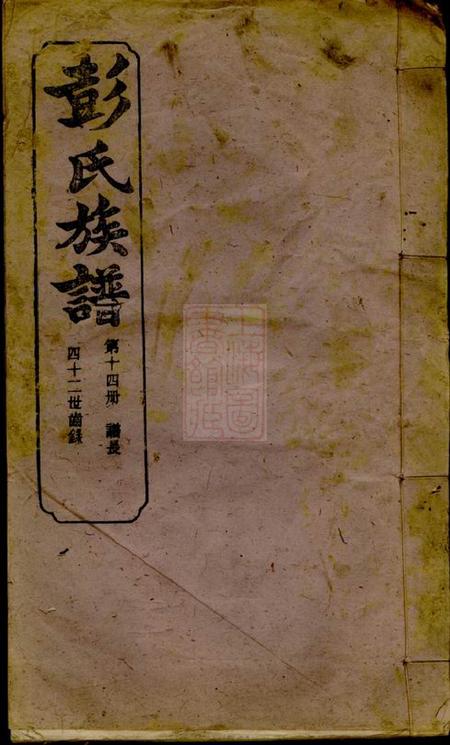 彭氏族譜
第十四册 譜長
四十二世齒錄
上海圖書館藏